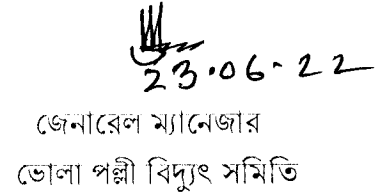 23.06.22
জেনারেল ম্যানেজার
ভোলা পল্লী বিদ্যুৎ সমিতি